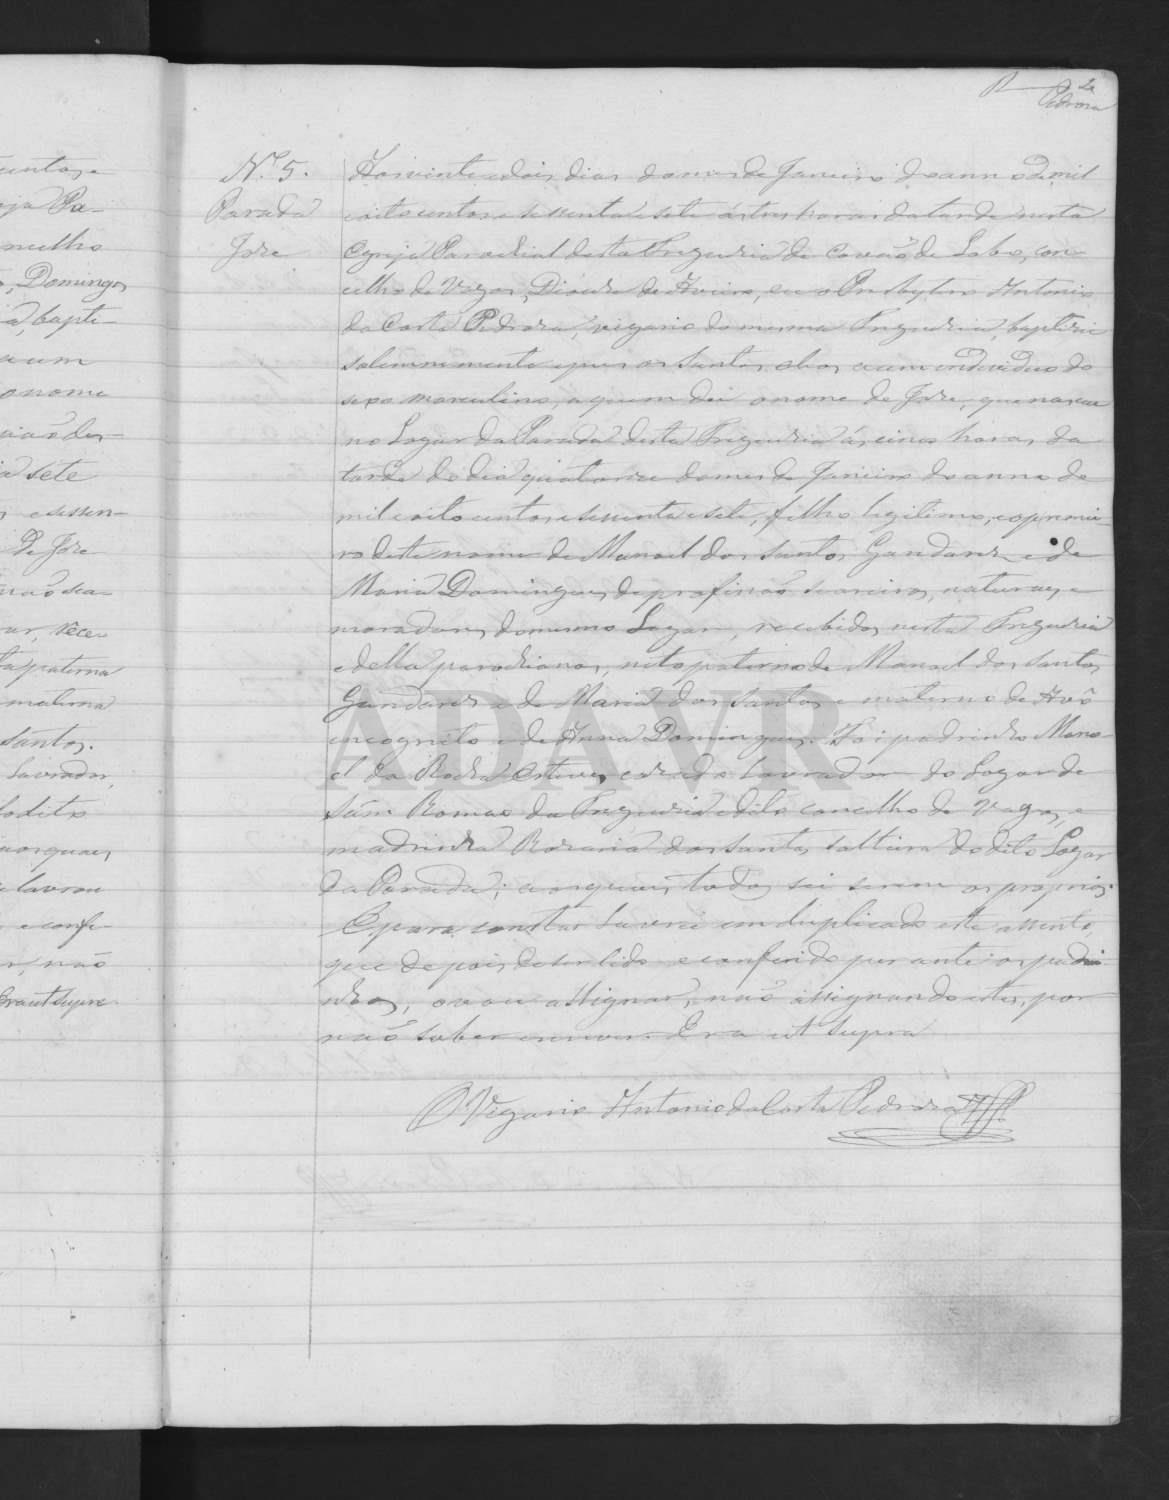 2
Pedroza
untos e
oja Pa-
ncelho
Domingos
a, bapti-
a um
o nome
a sete
e sessen-
De Joze
não sea-
ar, Rece-
ta paterna
materna
Santos.
Lavrador,
Lodito
aos quaes
e lavrou
e confe-
r, não
Era ut supra
Nº 5.
Parada
Joze
Aos vinte e dois dias do mes de Janeiro do anno de mil
e oito centos e sessenta e sete ás tres horas da tarde nesta
Egreja Parochial desta Freguezia de Covão de Lobo, con-
celho de Vagos, Diocese de Aveiro, eu o Presbytero Antonio
da Costa Pedroza, vigario da mesma Freguezia, baptizei
solemnemente e pus os Santos oleos a um individuo do
sexo masculino, a quem dei o nome de Joze, que nasceu
no Logar da Parada desta Freguezia ás cinco horas da
tarde do dia quatorze do mes de Janeiro do anno de
mil e oito centos e sessenta e sete, filho legitimo, e o primei-
ro deste nome de Manoel dos Santos Gandarez e de
Maria Domingues, de profissão seareiros, naturaes e
moradores do mesmo Logar, recebidos nesta Freguezia
e della parochianos, neto paterno de Manoel dos Santos
Gandarez e de Maria dos Santos e materno de Avô
incognito e de Anna Domingues. Foi padrinho Mano-
el da Rocha Esteves, cazado Lavrador do Logar de
Sam Romão da Freguezia e dito concelho de Vagos, e
madrinha Rozaria dos Santos solteira do dito Logar
da Parada; os quaes todos sei serem os proprios.
E para constar lavrei em duplicado este assento,
que depois de ser lido e conferido perante os padri-
nhos, o vou assignar, não assignando estes, por
não saber escrever. Era ut supra
O Vigario Antonio da Costa Pedroza
ADAVR